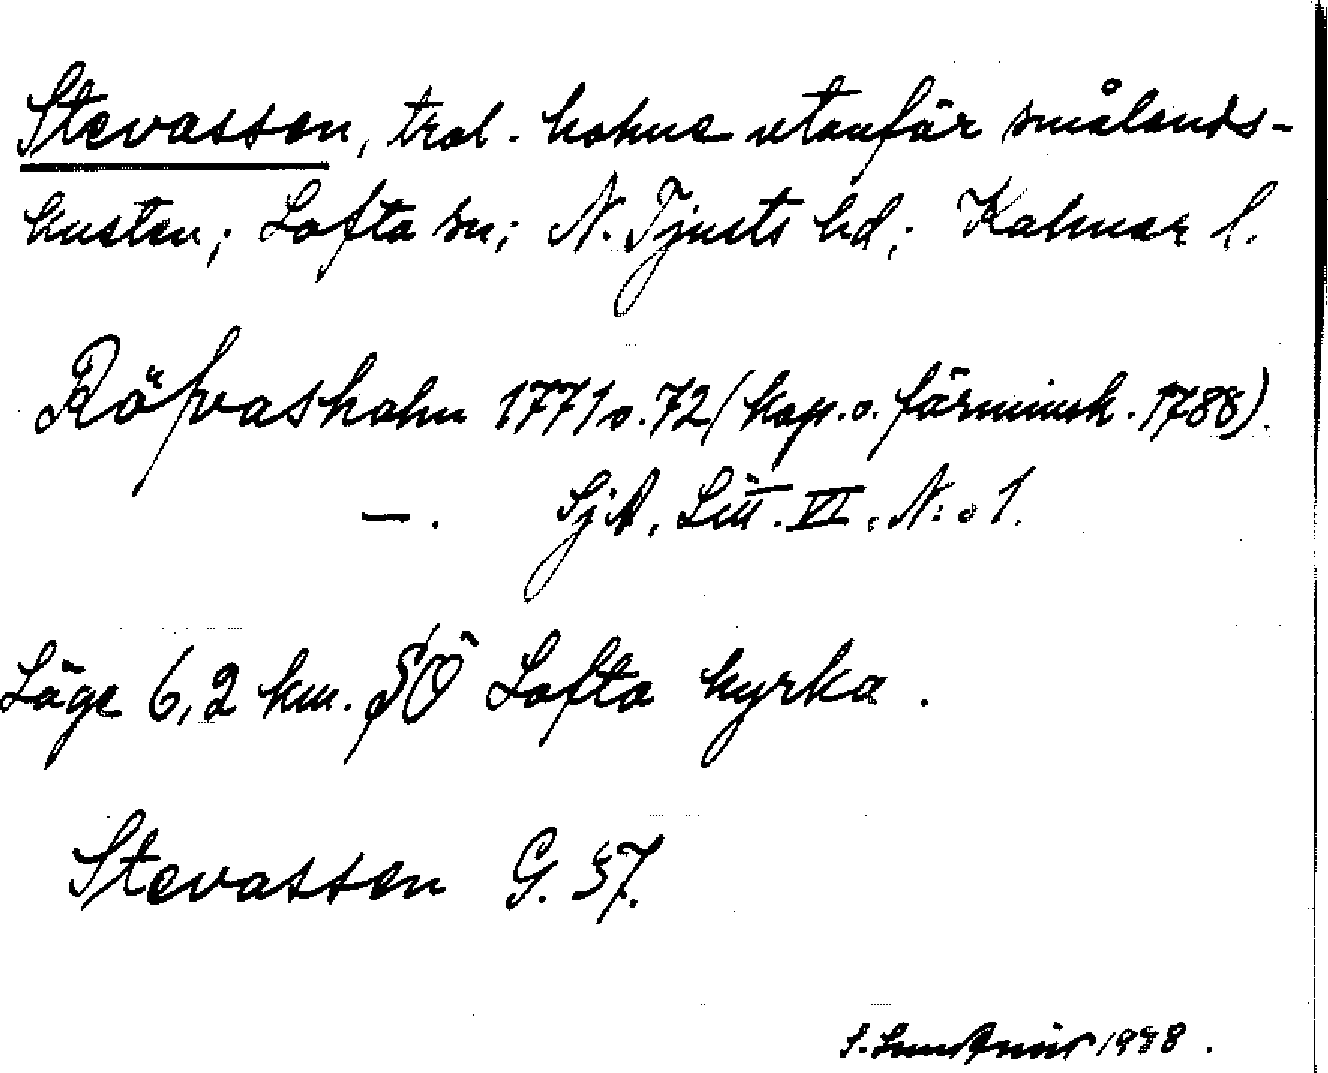 Stevassen, trol. holme utanför smålands-
kusten; Lofta sn; N. Tjusts hd; Kalmar l.
Röfvasholm 1771 o. 72 (kop. o. förminsk. 1788).
—. SjA, Litt. VI, N:o 1.
Läge 6,2 km. SÖ Lofta kyrka.
Stevassen G. 37.
1988.